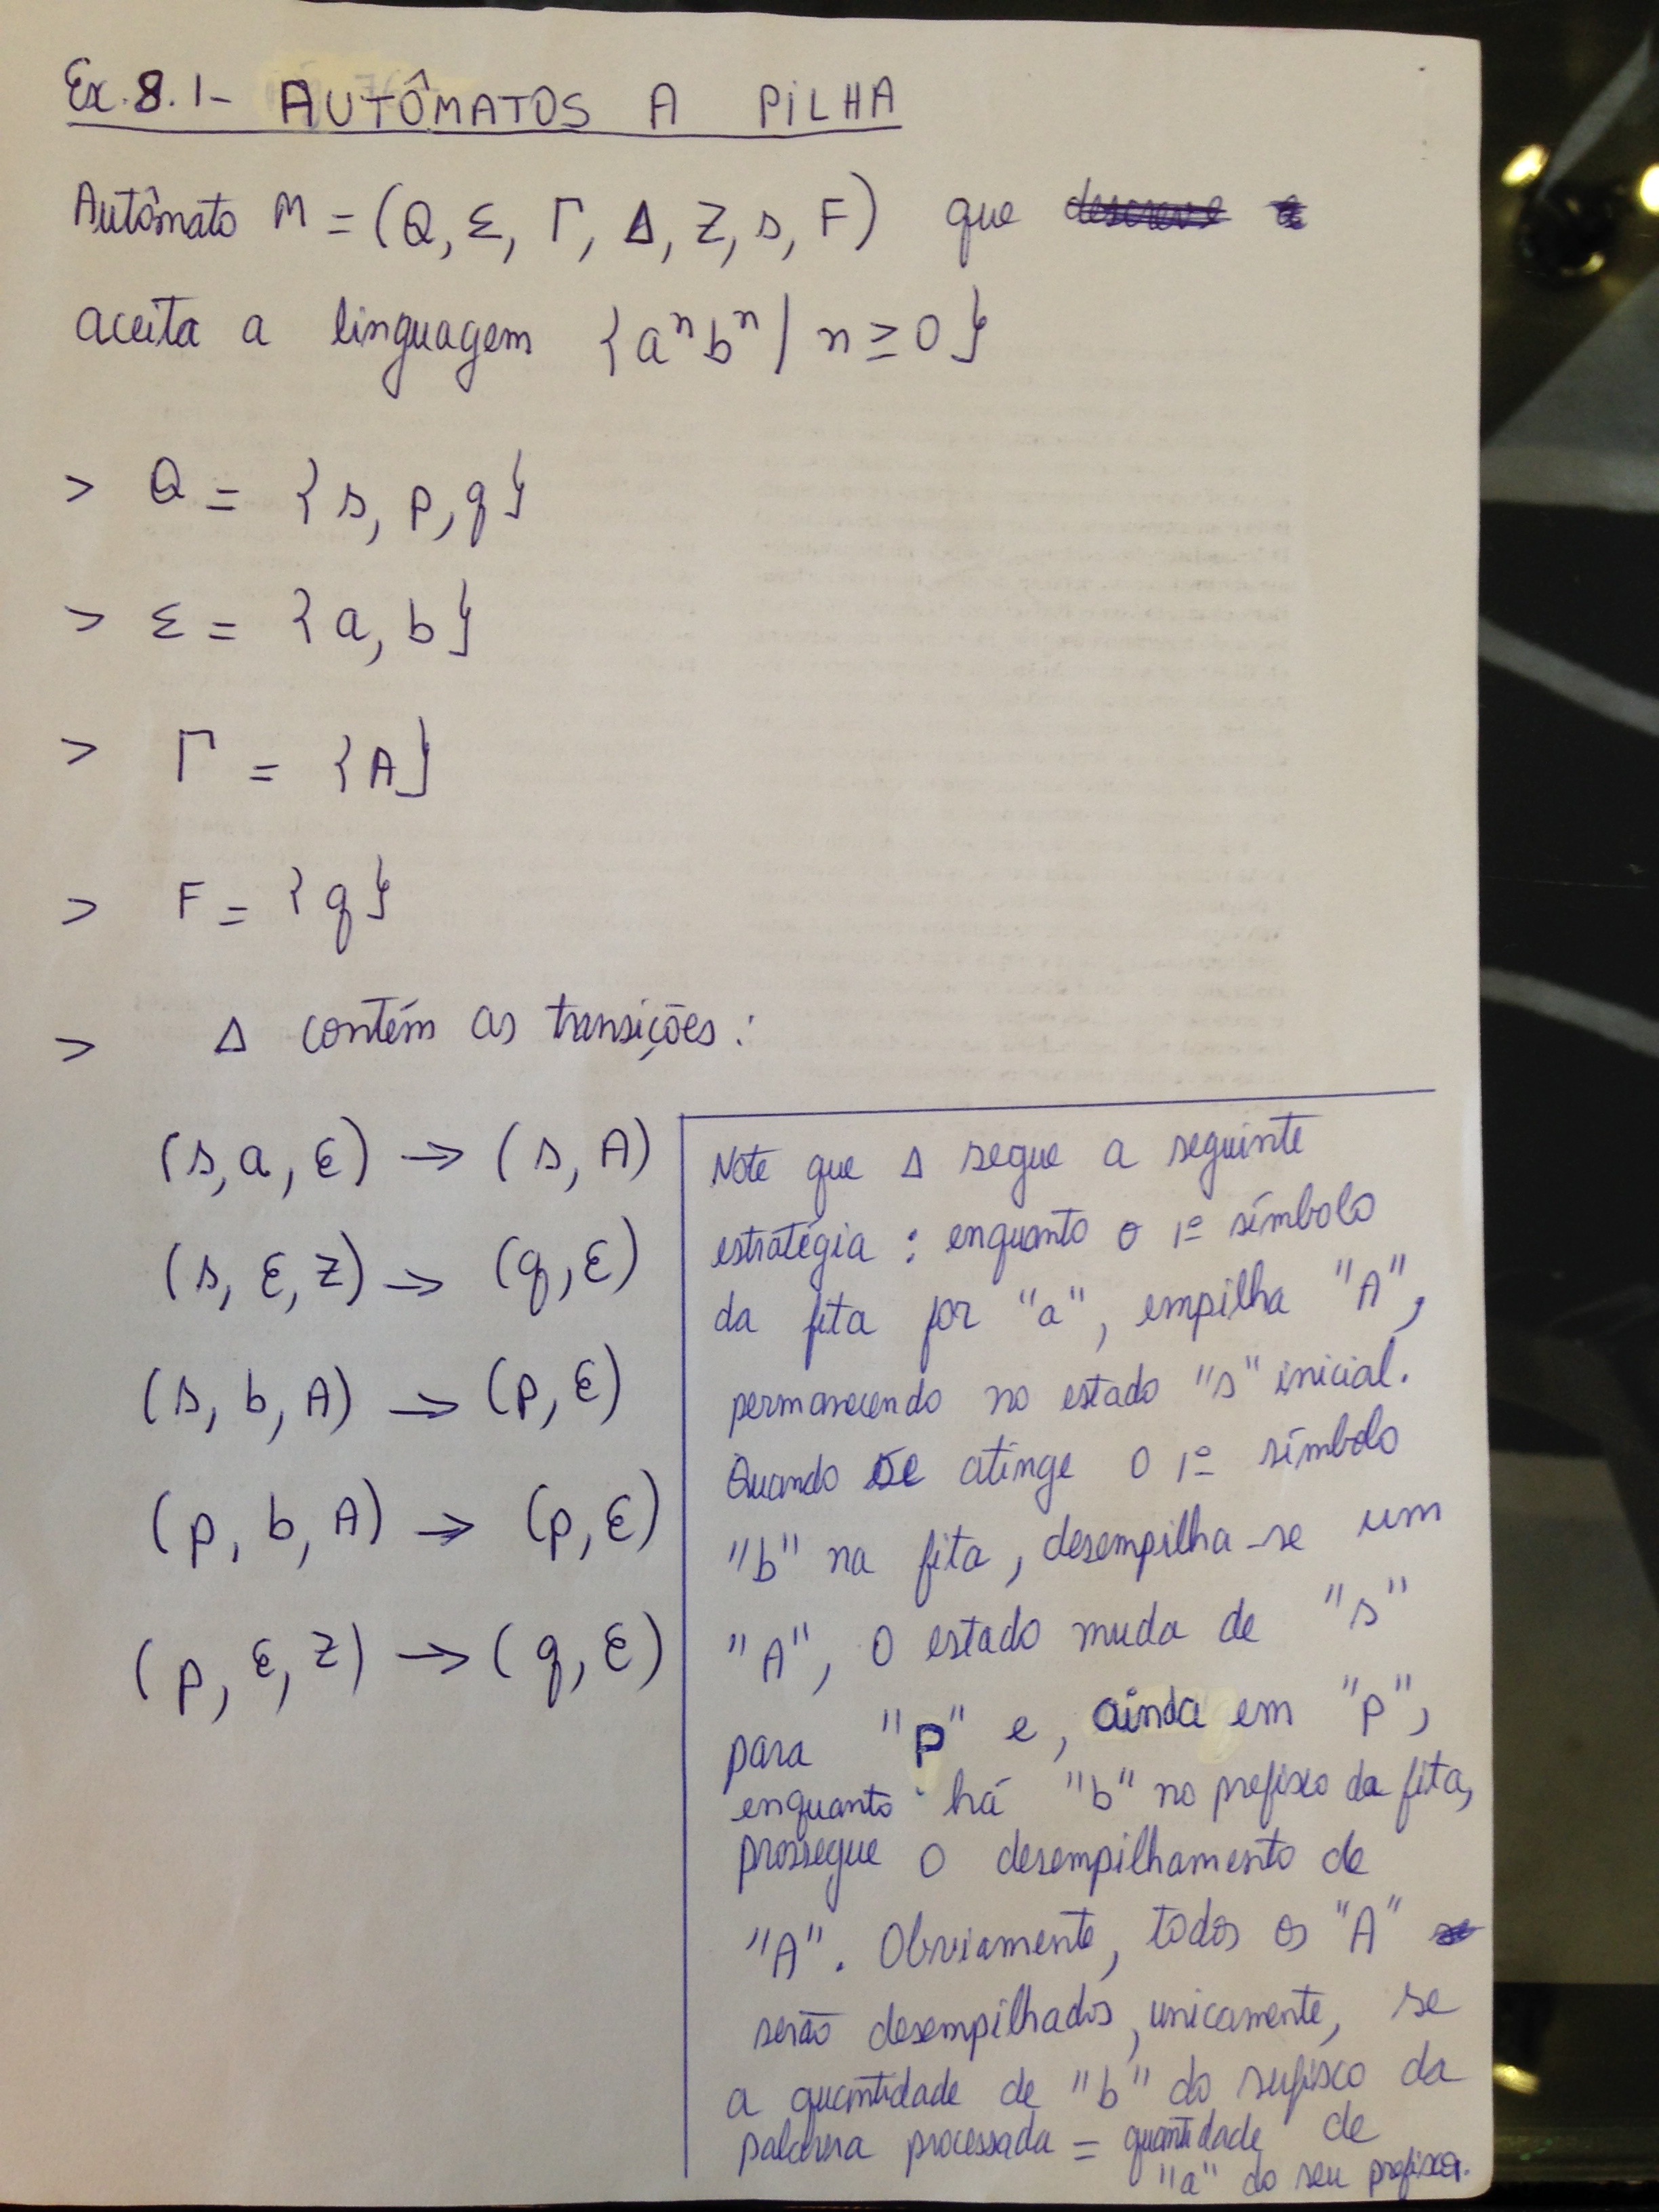 Ex. 8.1- AUTÔMATOS A PILHA
Autômato M = (Q, Σ, Γ, Δ, Z, s, F) que
aceita a linguagem {aⁿbⁿ | n ≥ 0}
> Q = {s, p, q}
> Σ = {a, b}
> Γ = {A}
> F = {q}
> Δ contém as transições:
(s, a, ε) → (s, A)
(s, ε, Z) → (q, ε)
(s, b, A) → (p, ε)
(p, b, A) → (p, ε)
(p, ε, Z) → (q, ε)
Note que Δ segue a seguinte
estratégia: enquanto o 1º símbolo
da fita for "a", empilha "A",
permanecendo no estado "s" inicial.
Quando se atinge o 1º símbolo
"b" na fita, desempilha-se um
"A", o estado muda de "s"
para "p" e, ainda em "p",
enquanto há "b" no prefixo da fita,
prossegue o desempilhamento de
"A". Obviamente, todos os "A"
serão desempilhados, unicamente, se
a quantidade de "b" do sufixo da
palavra processada = quantidade de
"a" do seu prefixo.